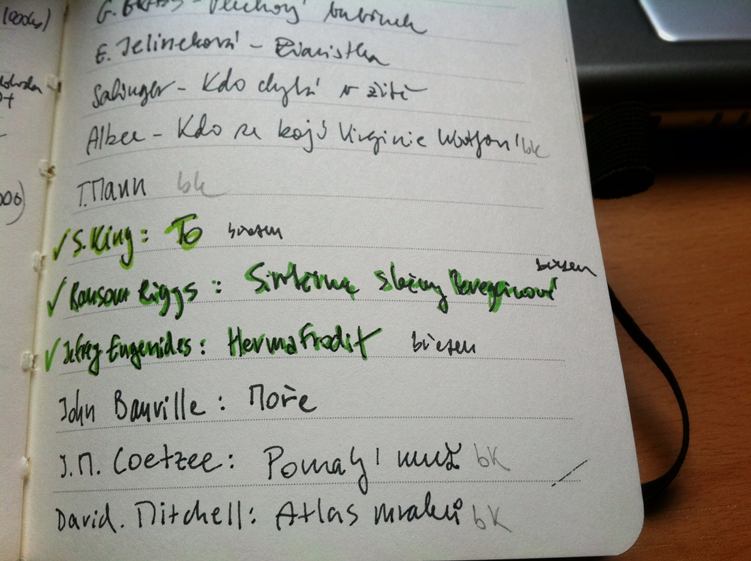 (2000)
G. Grass - Plechový bubínek
E. Jelineková - Pianistka
Salinger - Kdo chytá v žitě
Albee - Kdo se bojí Virginie Woolfové bk
T. Mann bk
✓ S. King: To
✓ Ransom Riggs: Sirotčinec slečny Peregrinové
✓ Jefrey Eugenides: Hermafrodit
John Banville: Moře
J.M. Coetzee: Pomalý muž bk
David. Mitchell: Atlas mraků bk